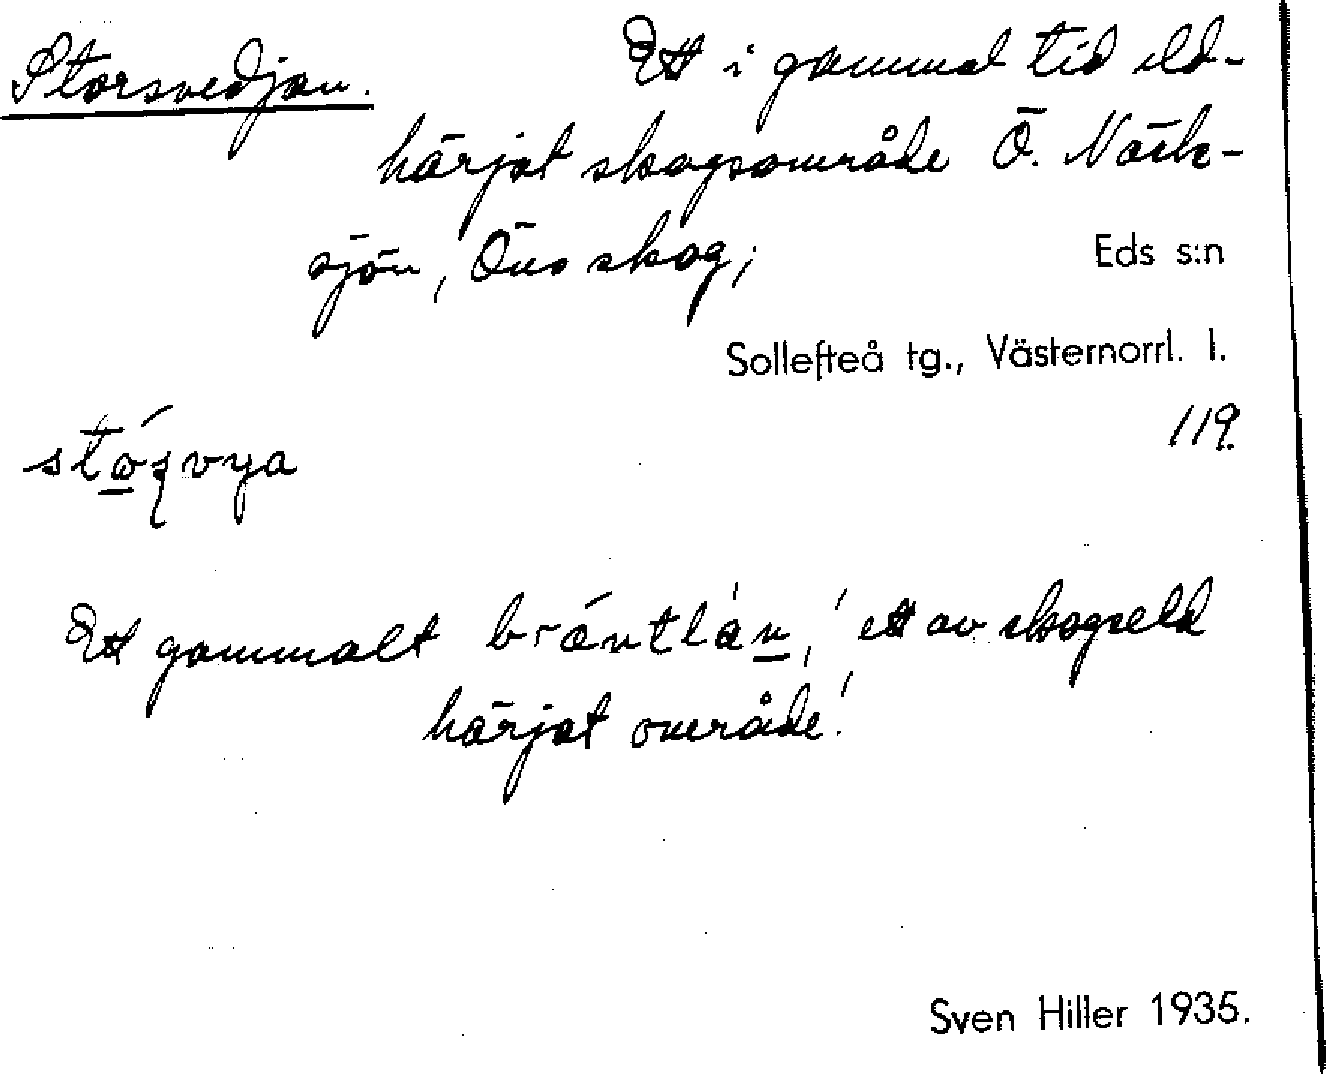 Storsvedjan. Ett i gammal tid eld-
härjat skogsområde Ö. Näck-
sjön, Öns skog;
Eds s:n
Sollefteå tg., Västernorrl. l.
119.
Ett gammalt bräntlän, 'ett av skogseld
härjat område'.
Sven Hiller 1935.